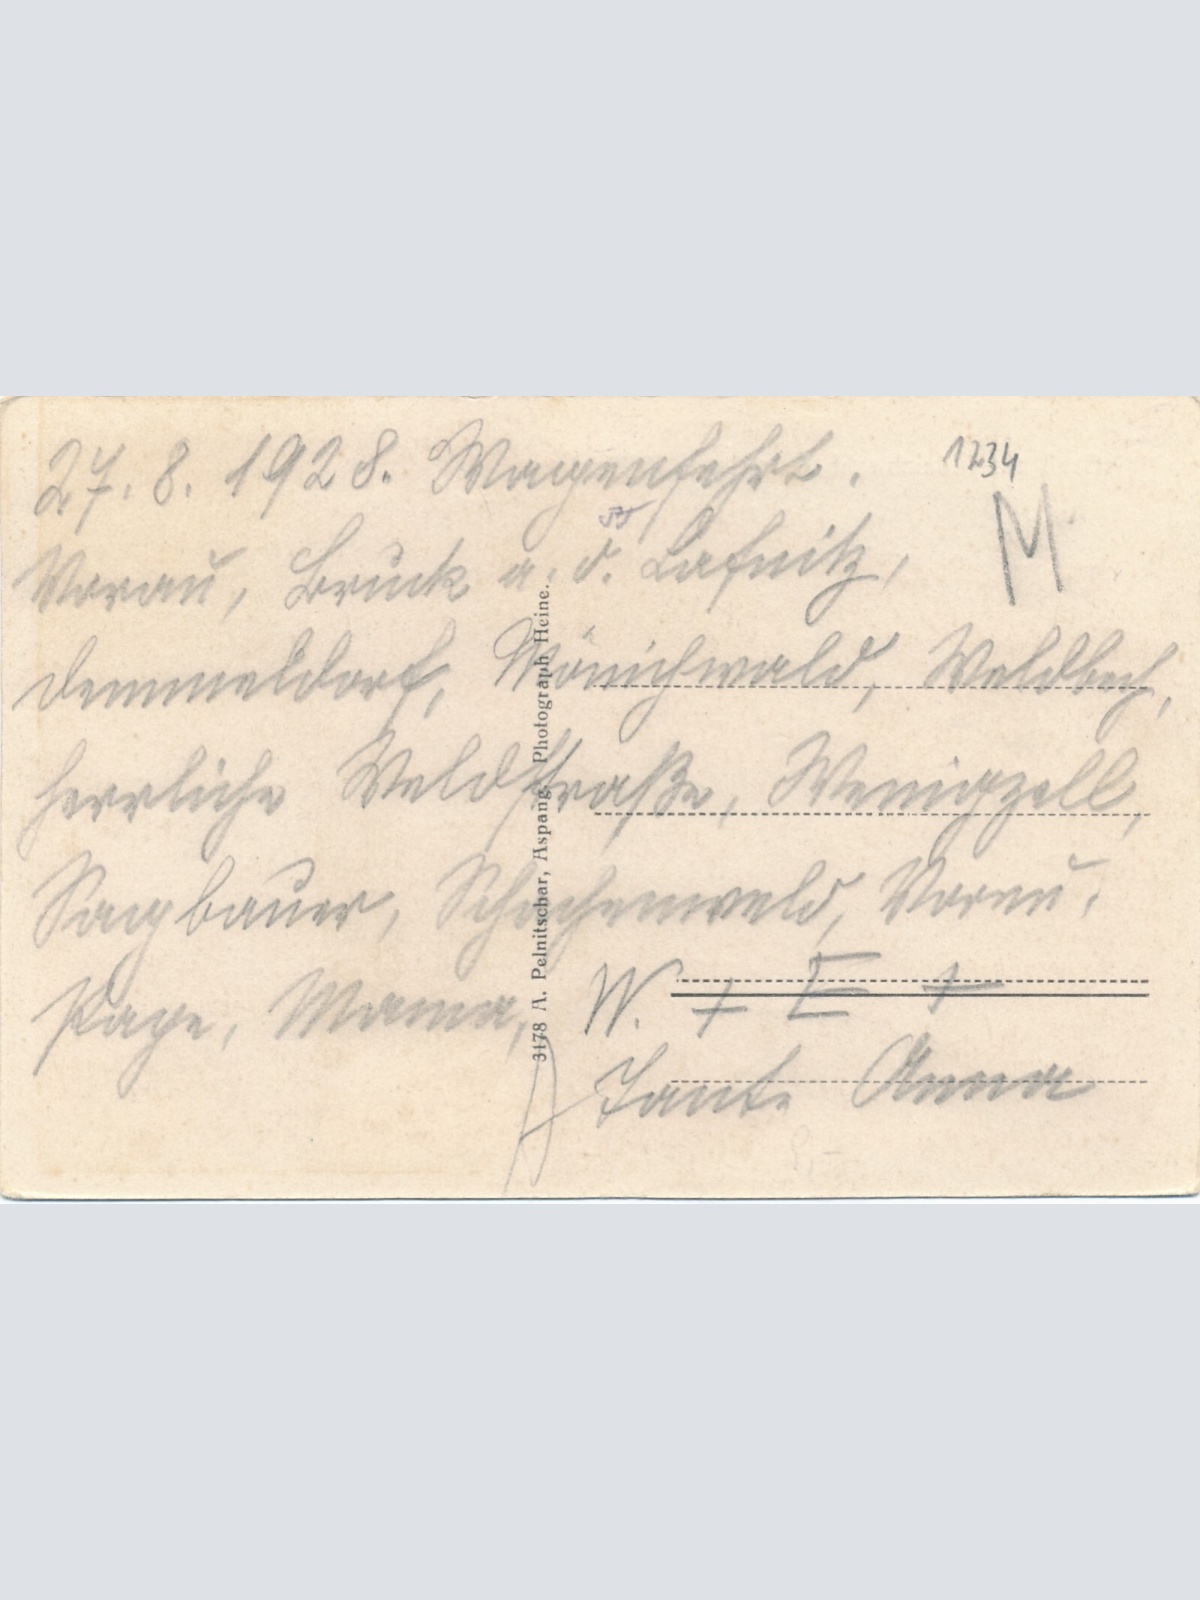 27. 8. 1928. Wagenfahrt.
1234
M
Vorau, Bruck a. d. Lafnitz,
Demmeldorf, Mönichwald, Waldbach,
herrliche Waldstraße, Wenigzell,
Sagbauer, Schachenwald, Vorau.
Papa, Mama, W. + E +
Tante Anna
3178 A. Pelnitschar, Aspang. Photograph Heine.